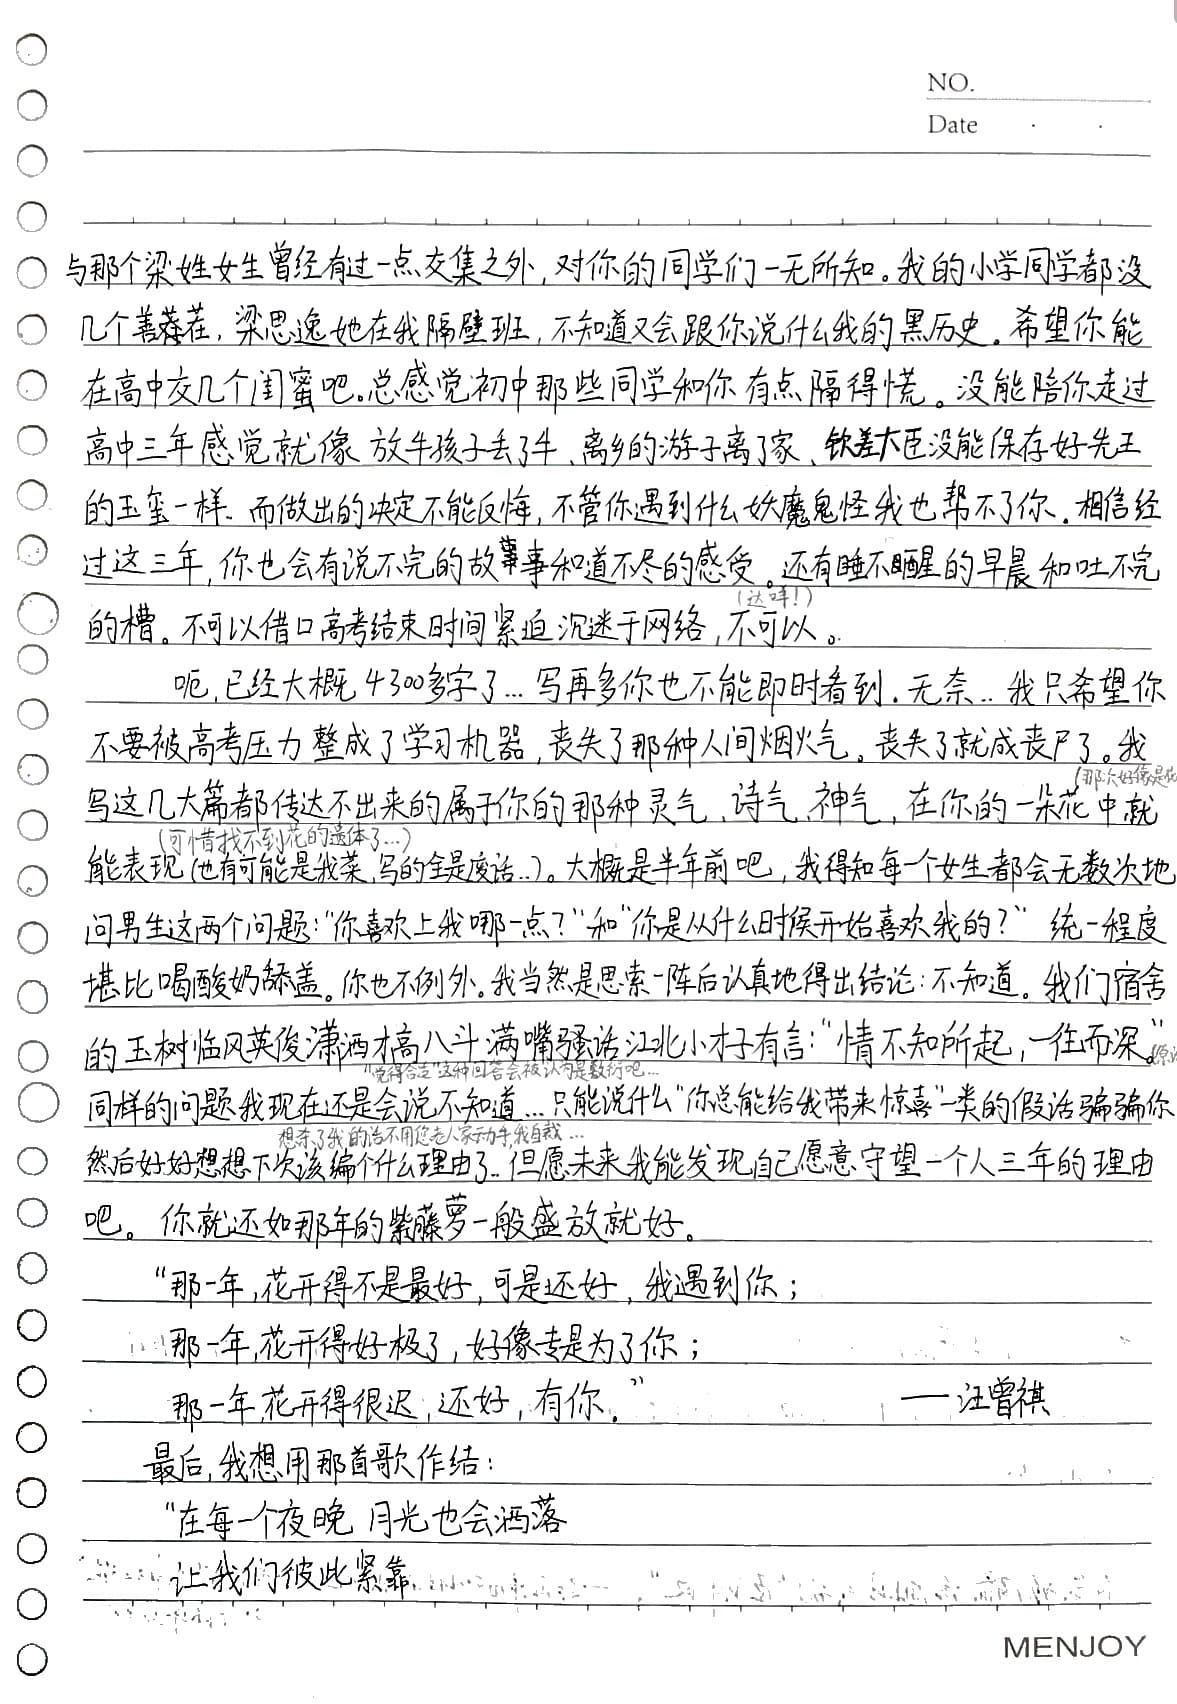 NO.
Date
与那个梁姓女生曾经有过一点交集之外，对你的同学们一无所知。我的小学同学都没
几个善茬，梁思逸她在我隔壁班，不知道又会跟你说什么我的黑历史。希望你能
在高中交几个闺蜜吧。总感觉初中那些同学和你有点隔得慌。没能陪你走过
高中三年感觉就像放牛孩子丢了牛、离乡的游子离了家、钦差大臣没能保存好先王
的玉玺一样。而做出的决定不能反悔，不管你遇到什么妖魔鬼怪我也帮不了你。相信经
过这三年，你也会有说不完的故事和道不尽的感受。还有睡不醒的早晨和吐不完
(达咩！)
的槽。不可以借口高考结束时间紧迫沉迷于网络，不可以。
呃，已经大概4300多字了…写再多你也不能即时看到。无奈..我只希望你
不要被高考压力整成了学习机器，丧失了那种人间烟火气。丧失了就成丧尸了。我
(那次好像是花
写这几大篇都传达不出来的属于你的那种灵气、诗气、神气，在你的一朵花中就
(可惜找不到花的遗体了…)
能表现(也有可能是我菜，写的全是废话..)。大概是半年前吧，我得知每一个女生都会无数次地
问男生这两个问题：“你喜欢上我哪一点？”和“你是从什么时候开始喜欢我的？” 统一程度
堪比喝酸奶舔盖。你也不例外。我当然是思索一阵后认真地得出结论：不知道。我们宿舍
的玉树临风英俊潇洒才高八斗满嘴骚话江北小才子有言：“情不知所起，一往而深。”
“觉得合适”这种回答会被认为是敷衍吧…
同样的问题我现在还是会说不知道…只能说什么“你总能给我带来惊喜”一类的假话骗骗你
想杀了我的话不用您老人家动手，我自裁…
然后好好想想下次该编个什么理由了..但愿未来我能发现自己愿意守望一个人三年的理由
吧。你就还如那年的紫藤萝一般盛放就好。
“那一年，花开得不是最好，可是还好，我遇到你；
那一年，花开得好极了，好像专是为了你；
那一年，花开得很迟，还好，有你。” ——汪曾祺
最后，我想用那首歌作结：
“在每一个夜晚 月光也会洒落
让我们彼此紧靠
MENJOY